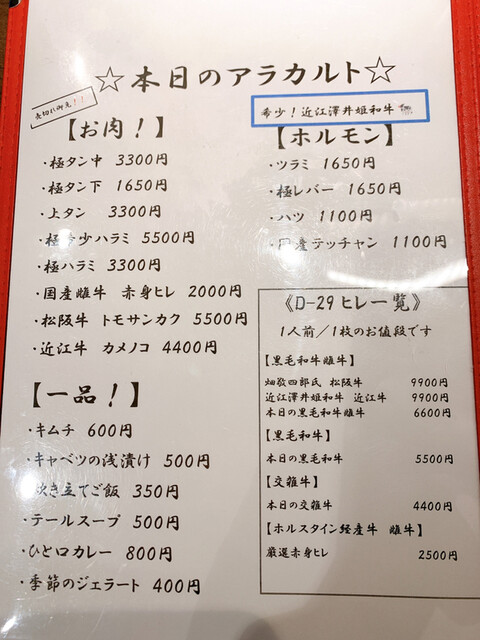 ☆本日のアラカルト☆
売切れ御免!!
希少!近江澤井姫和牛
【お肉!】
・極タン中 3300円
・極タン下 1650円
・上タン 3300円
・極希少ハラミ 5500円
・極ハラミ 3300円
・国産雌牛 赤身ヒレ 2000円
・松阪牛 トモサンカク 5500円
・近江牛 カメノコ 4400円
【一品!】
・キムチ 600円
・キャベツの浅漬け 500円
炊き立てご飯 350円
・テールスープ 500円
・ひと口カレー 800円
・季節のジェラート 400円
【ホルモン】
・ツラミ 1650円
・極レバー 1650円
・ハツ 1100円
・国産テッチャン 1100円
《D-29 ヒレ一覧》
1人前/1枚のお値段です
【黒毛和牛雌牛】
畑敬四郎氏 松阪牛 9900円
近江澤井姫和牛 近江牛 9900円
本日の黒毛和牛雌牛 6600円
【黒毛和牛】
本日の黒毛和牛 5500円
【交雑牛】
本日の交雑牛 4400円
【ホルスタイン経産牛 雌牛】
厳選赤身ヒレ 2500円